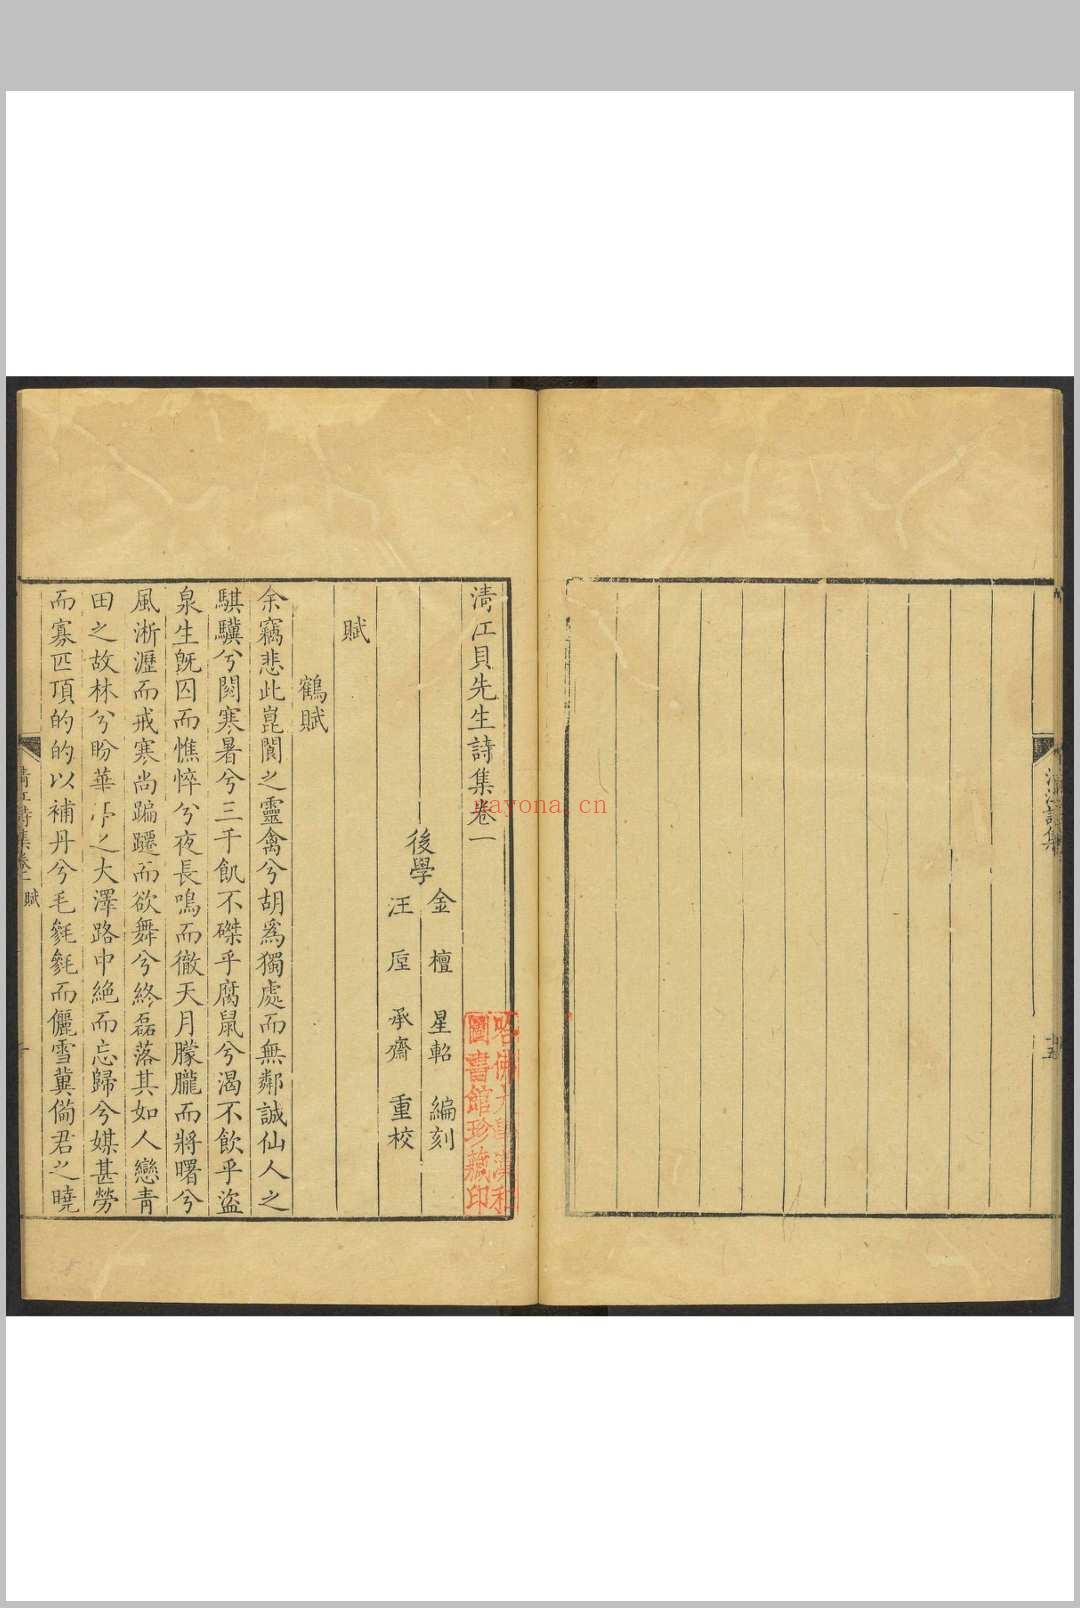 清江貝先生詩集卷一
後學
金檀星軺編刻
汪厔承齋重校
賦
鶴賦
余竊悲此崑閬之靈禽兮胡爲獨處而無鄰誠仙人之
騏驥兮閱寒暑兮三千飢不磔乎腐鼠兮渴不飲乎盜
泉生旣囚而憔悴兮夜長鳴而徹天月朦朧而將曙兮
風淅瀝而戒寒尚蹁躚而欲舞兮終磊落其如人戀青
田之故林兮盼華亭之大澤路中絶而忘歸兮媒甚勞
而寡匹頂的的以補丹兮毛毿毿而儷雪冀備君之曉
清江詩集卷一
賦
一
清江詩集
十五
哈佛大學漢和
圖書館珍藏印
nayona.cn